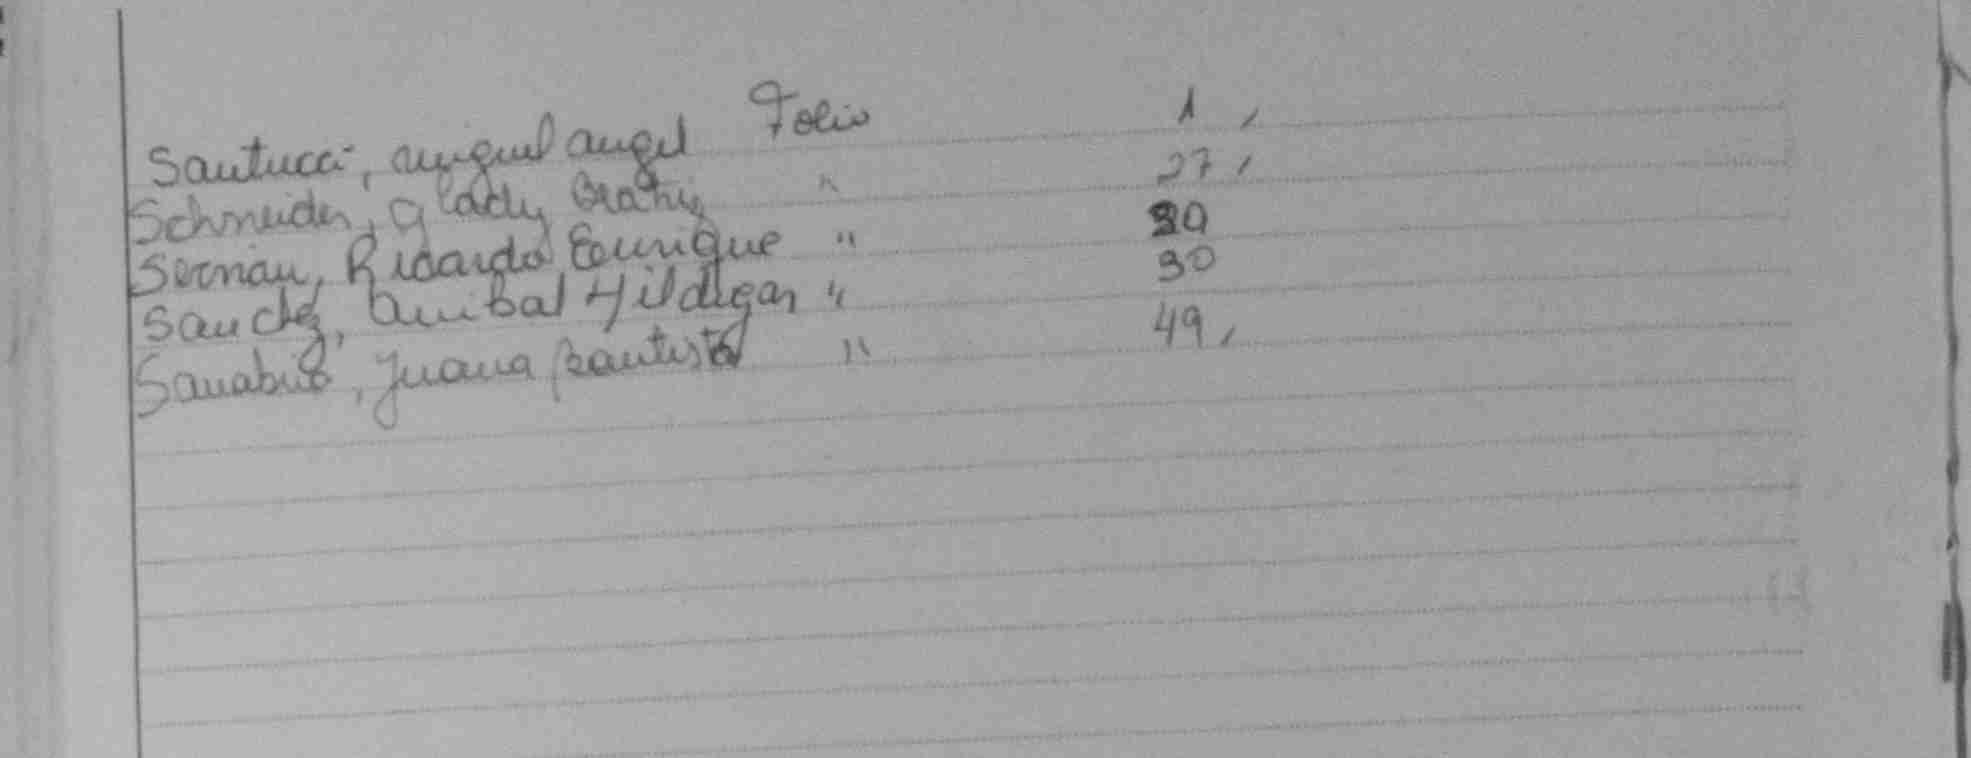 Santucci, Miguel Angel Folio 1 ,
Schneider, Glady " 27 ,
Sernau, Ricardo Enrique "
Sanchez, Anibal Hildegar " 30
Sanabria, Juana Bautista " 49 ,